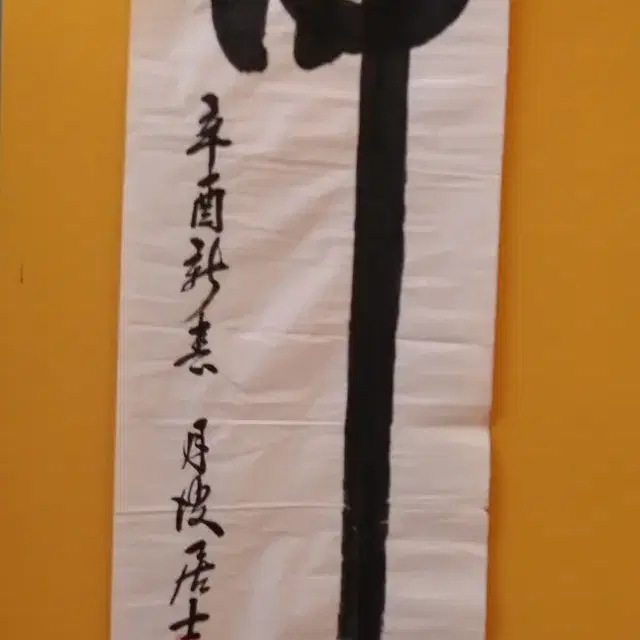 辛酉新春 月坡居士